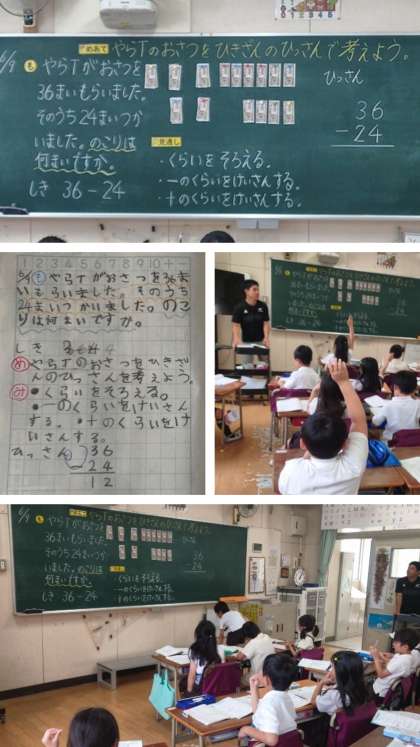 6/9
めあて やらTのおさつをひきざんのひっさんで考えよう。
も やらTがおさつを
36まいもらいました。
そのうち24まいつか
いました。のこりは
何まいですか。
しき 36－24
見通し
・くらいをそろえる。
・一のくらいをけいさんする。
・十のくらいをけいさんする。
ひっさん
36
－24
1 2 3 4 5 6 7 8 9 10
6/9 も やらTがおさつを36ま
いもらいました。そのうち
24まいつかいました。のこ
りは何まいですか。
しき
め やらTのおさつをひきざ
んのひっさんを考えよう。
み ●くらいをそろえる。
●一のくらいをけいさん
する。●十のくらいをけ
いさんする。
ひっさん 36
24
12
も やらTがおさつを
36まいもらいました。
そのうち24まいつか
いました。のこりは
何まいですか。
しき 36－24
・くらいをそろえる。
・一のくらいをけいさんする。
・十のくらいをけいさんする。
36
－24